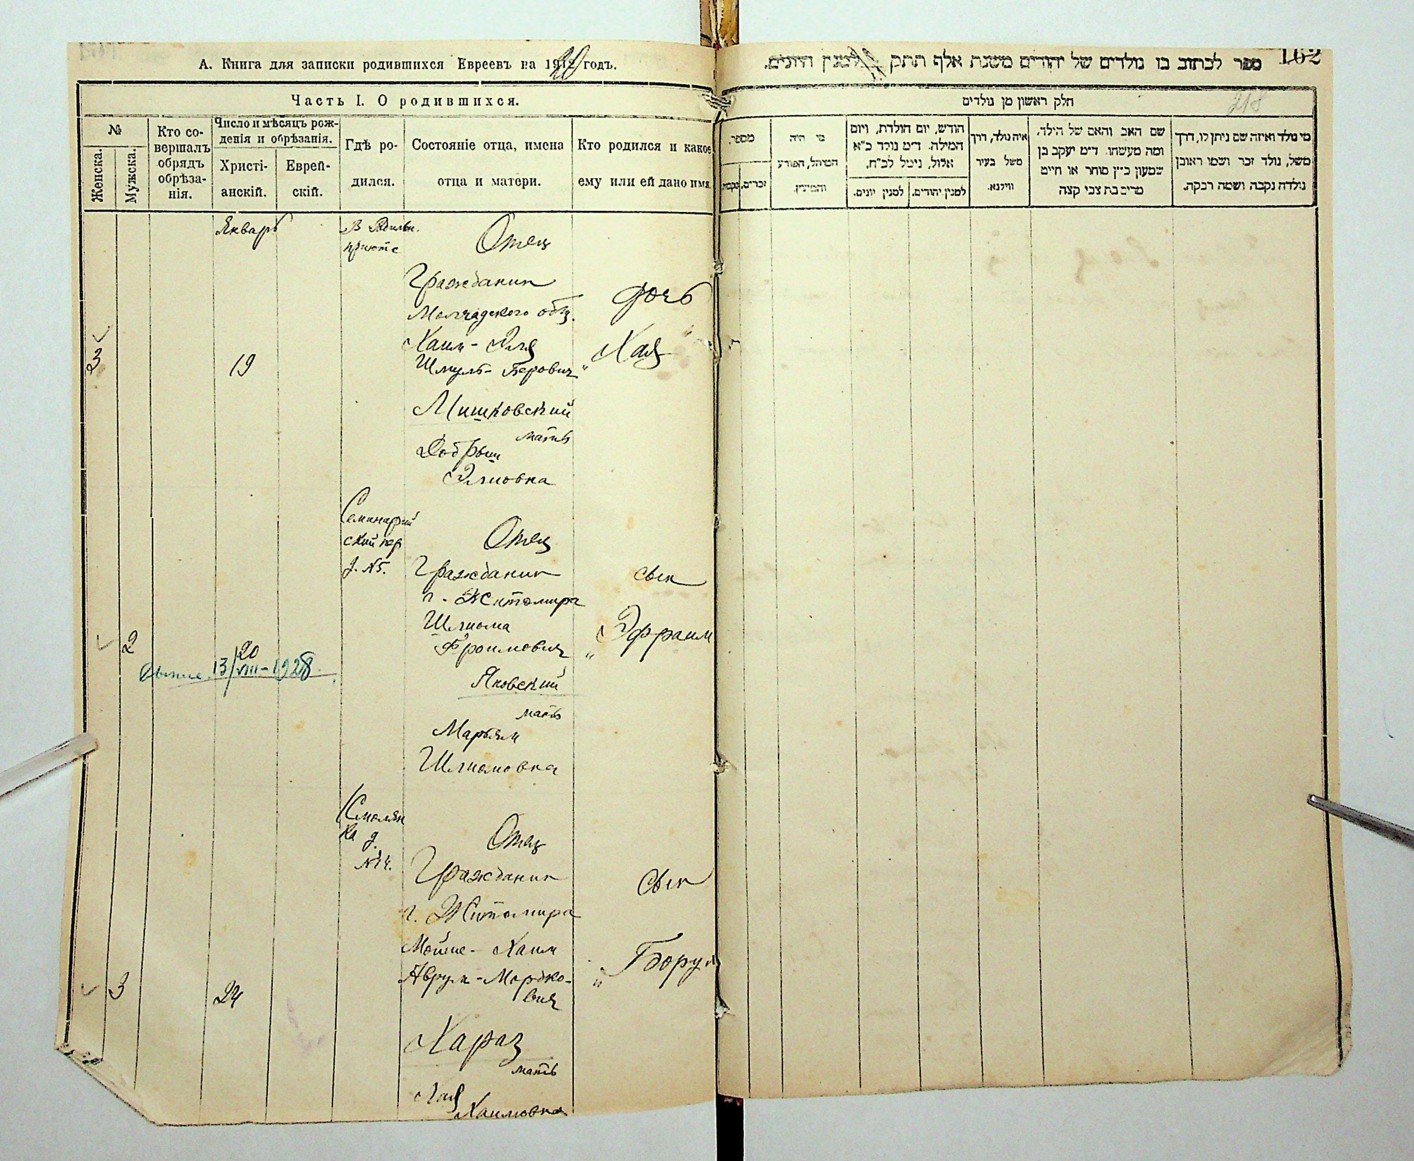 А. Книга для записки родившихся Евреевъ на 1920 годъ.
Часть I. О родившихся.
№
Женска.
Мужска.
Кто со-
вершалъ
обрядъ
обрѣза-
нія.
Число и мѣсяцъ рож-
денія и обрѣзанія.
Христі-
анскій.
Еврей-
скій.
Гдѣ ро-
дился.
Состояніе отца, имена
отца и матери.
Кто родился и какое
ему или ей дано имя.
Январь
В Родильн.
приюте
Отец
Гражданин
Молчадского общ.
Хаим-Эля
Шмуль-Берович
Мишковский
мать
Добрыш
Эльовна
3
19
дочь
"Хая"
Семинарий
ский пер
д. №5.
Отец
Гражданин
г. Житомира
Шлиома
Фроимович
Яновский
мать
Марьям
Шлиомовна
2
20
13/VIII-1928
сын
"Эфраим
Смолян
ка д.
№14.
Отец
Гражданин
г. Житомира
Мойше-Хаим
Аврум-Мордко-
вич
Хараз
мать
Хая
Хаимовна
3
24
сын
"Борух
162
ספר לכתוב בו נולדים של יהודים משנת אלף תתק למנין היונים.
חלק ראשון מן נולדים
מספר.
נקבה.
זכרים.
מי היה
המוהל, הפורע
והמוצץ.
חודש, יום הולדת, ויום
המילה. ד״מ נולד כ״א
אלול, נימול לכ״ח.
למנין יונים.
למנין יהודים.
איה נולד, דרך
משל בעיר
ווילנא.
שם האב והאם של הילד,
ומה מעשהו. ד״מ יעקב בן
שמעון כ״ץ סוחר או חיים
מרים בת צבי קצה
מי נולד ואיזה שם ניתן לו, דרך
משל, נולד זכר ושמו ראובן
נולדה נקבה ושמה רבקה.